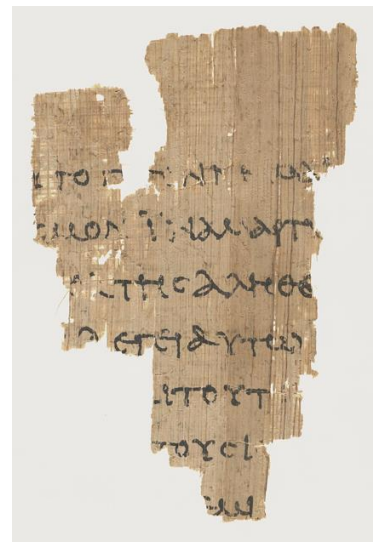 ΤΟ Γ
ϹΜΟΝ ΙΝΑ ΜΑΡΤΥ
ΤΗϹ ΑΛΗΘΕ
ΛΕΓΕΙ ΑΥΤΩ
Ι ΤΟΥΤ
ΤΟΥϹ Ι
ΜΙ